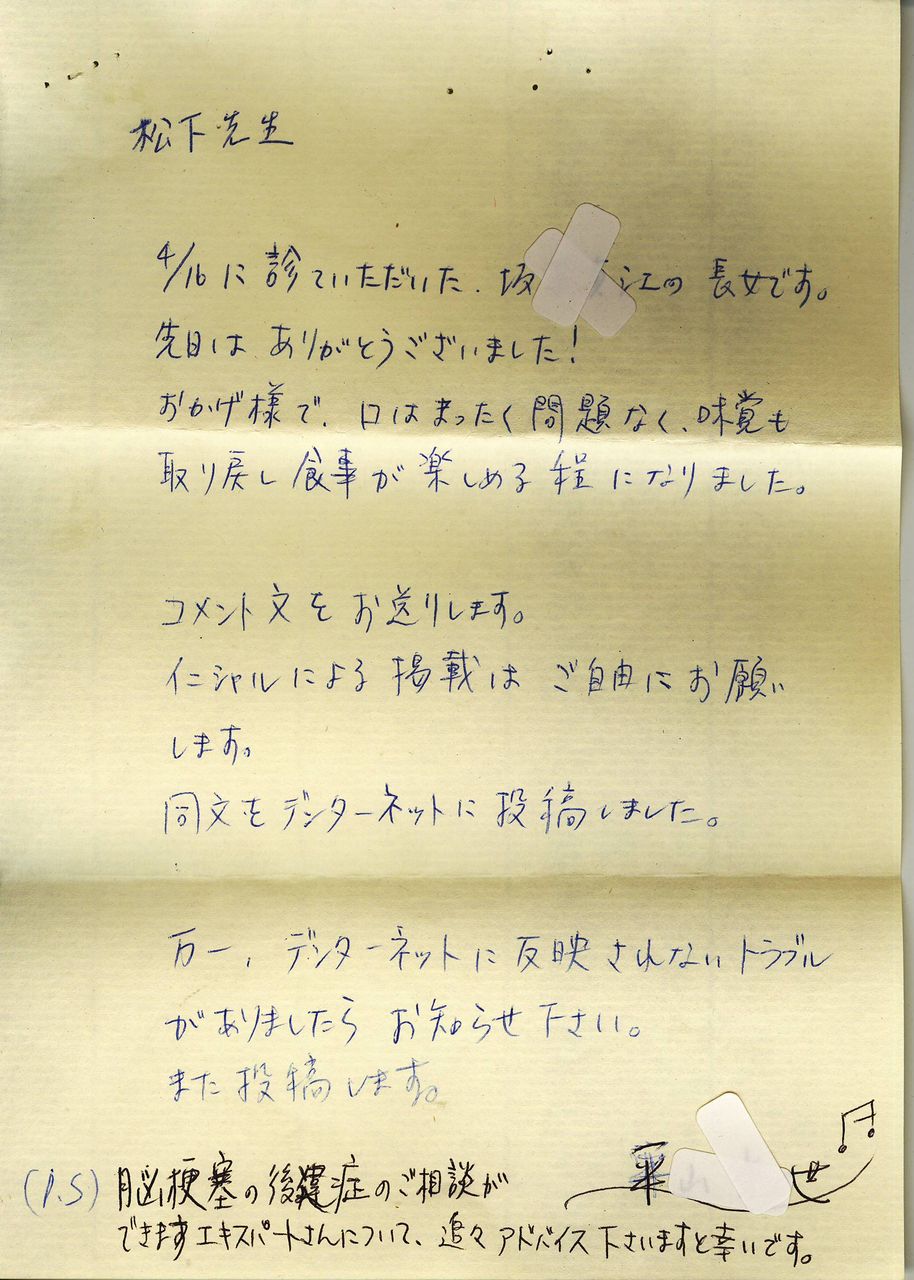 松下先生
4/16に診ていただいた、坂 江の長女です。
先日はありがとうございました!
おかげ様で、口はまったく問題なく、味覚も
取り戻し食事が楽しめる程になりました。
コメント文をお送りします。
イニシャルによる掲載はご自由にお願い
します。
同文をデンターネットに投稿しました。
万一、デンターネットに反映されないトラブル
がありましたらお知らせ下さい。
また投稿します。
(P.S) 脳梗塞の後遺症のご相談が
できますエキスパートさんについて、追々アドバイス下さいますと幸いです。
世